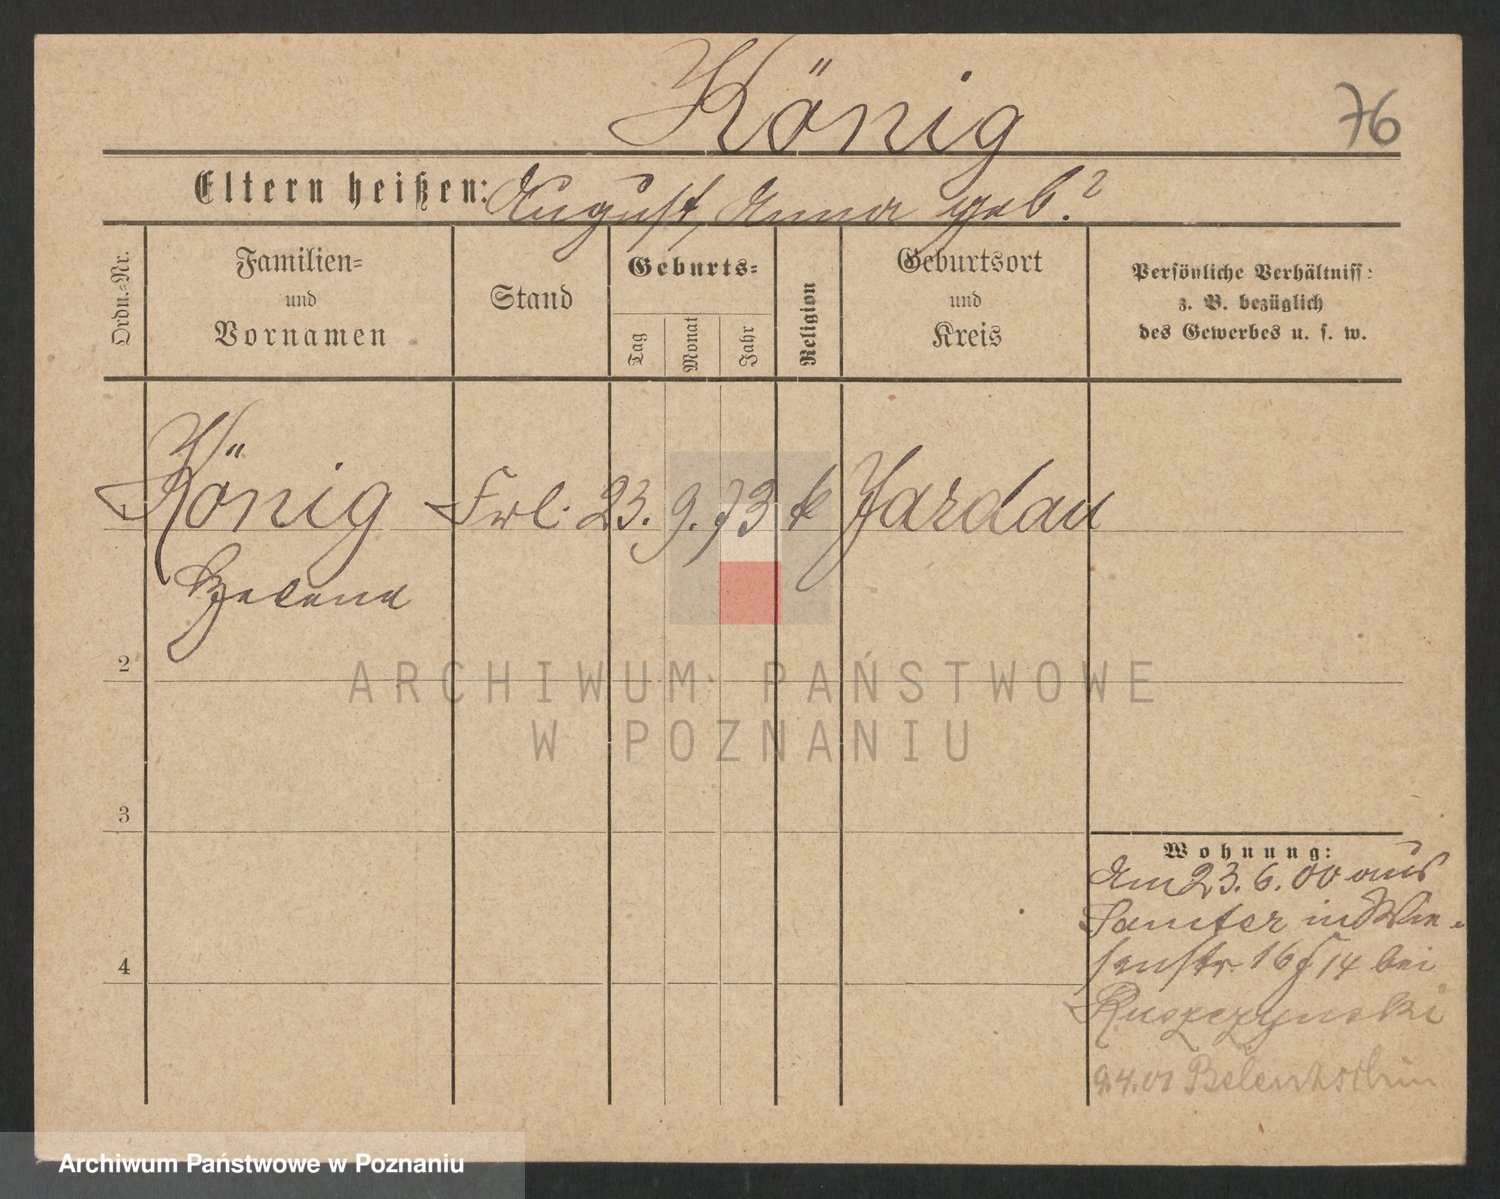 König
76
Eltern heißen: August, Anna geb.?
Ordn.-Nr.
Familien-
und
Vornamen
Stand
Geburts-
Tag
Monat
Jahr
Religion
Geburtsort
und
Kreis
Persönliche Verhältniss:
z. B. bezüglich
des Gewerbes u. s. w.
König Frl. 23. 9. 73 k Jardau
Helene
2
ARCHIWUM PAŃSTWOWE
W POZNANIU
3
Wohnung:
Am 23. 6. 00 aus
Samter in Wie-
senstr. 16 14 bei
Ruszczynski
4
9.4.01
Archiwum Państwowe w Poznaniu